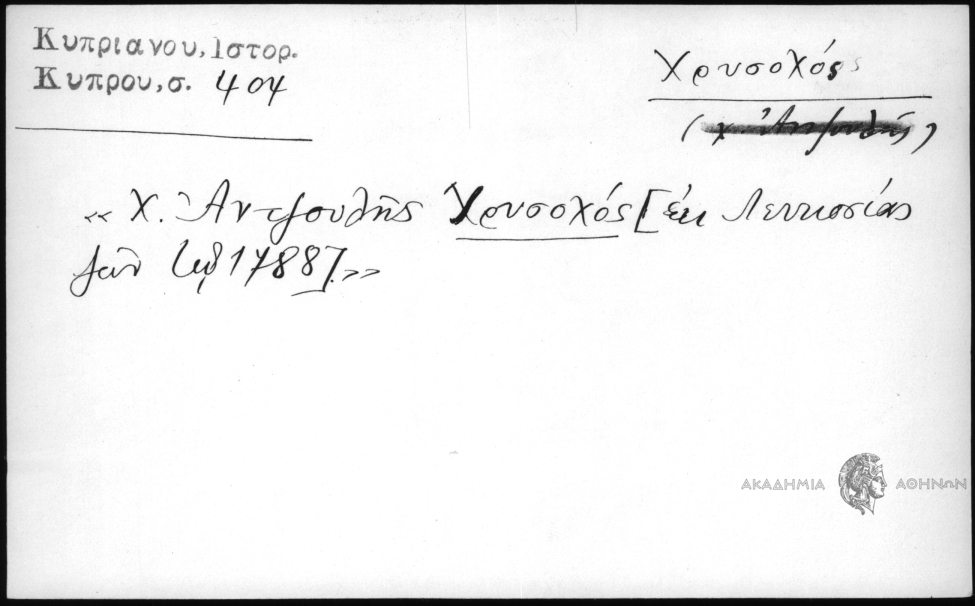 Κυπριανου, Ιστορ.
Κυπρου, σ. 404
Χρυσοχός
(χ. Ἀντζουλῆς)
«Χ. Ἀντζουλῆς Χρυσοχός [ἐκ Λευκωσίας
ζῶν τῷ 1788].»
ΑΚΑΔΗΜΙΑ ΑΘΗΝΩΝ